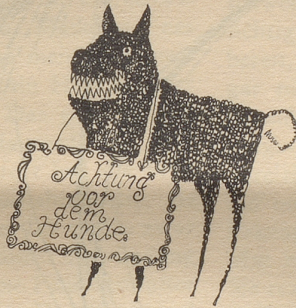 Achtung
vor
dem
Hunde.